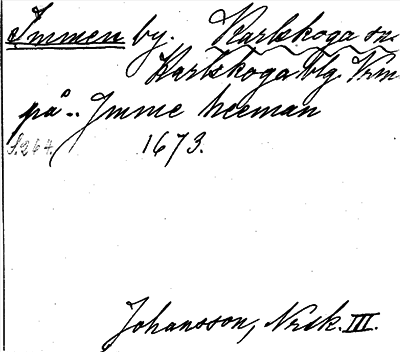 Immen by. Karlskoga sn.
Karlskoga blg. Vrm
på.. Jmme heeman
S.264. 1673.
Johansson, Nrik. III.